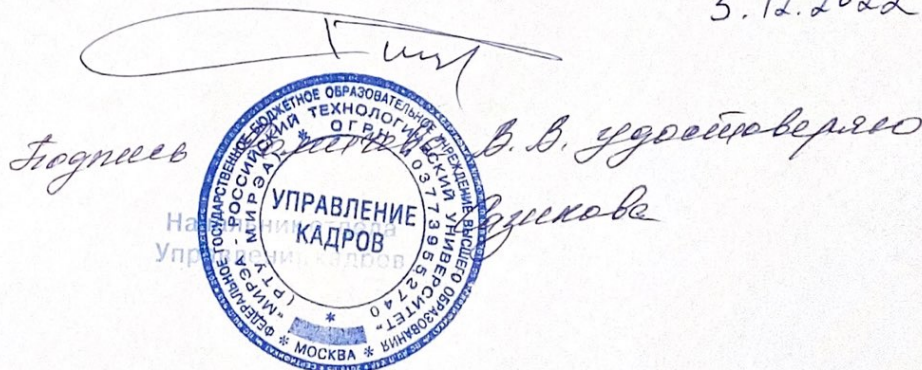 5.12.2022
Подпись В.В. удостоверяю
Начальник отдела
Управления кадров
ФЕДЕРАЛЬНОЕ ГОСУДАРСТВЕННОЕ БЮДЖЕТНОЕ ОБРАЗОВАТЕЛЬНОЕ УЧРЕЖДЕНИЕ ВЫСШЕГО ОБРАЗОВАНИЯ
"МИРЭА - РОССИЙСКИЙ ТЕХНОЛОГИЧЕСКИЙ УНИВЕРСИТЕТ"
(РТУ МИРЭА) * ОГРН 1037739552740
УПРАВЛЕНИЕ
КАДРОВ
* МОСКВА *